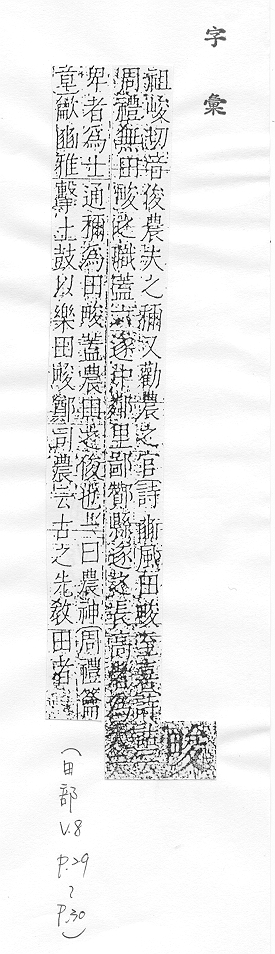 字彙
畯
祖峻切音俊農夫之稱又勸農之官詩豳風田畯至喜詩
周禮無田畯之職蓋六遂中鄰里鄙酇縣遂之長高者為
卑者為士通稱為田畯蓋農田之俊也一曰農神周禮籥
章龡豳雅擊土鼓以樂田畯鄭司農云古之先教田者
(田部 V.8 P.29~P.30)